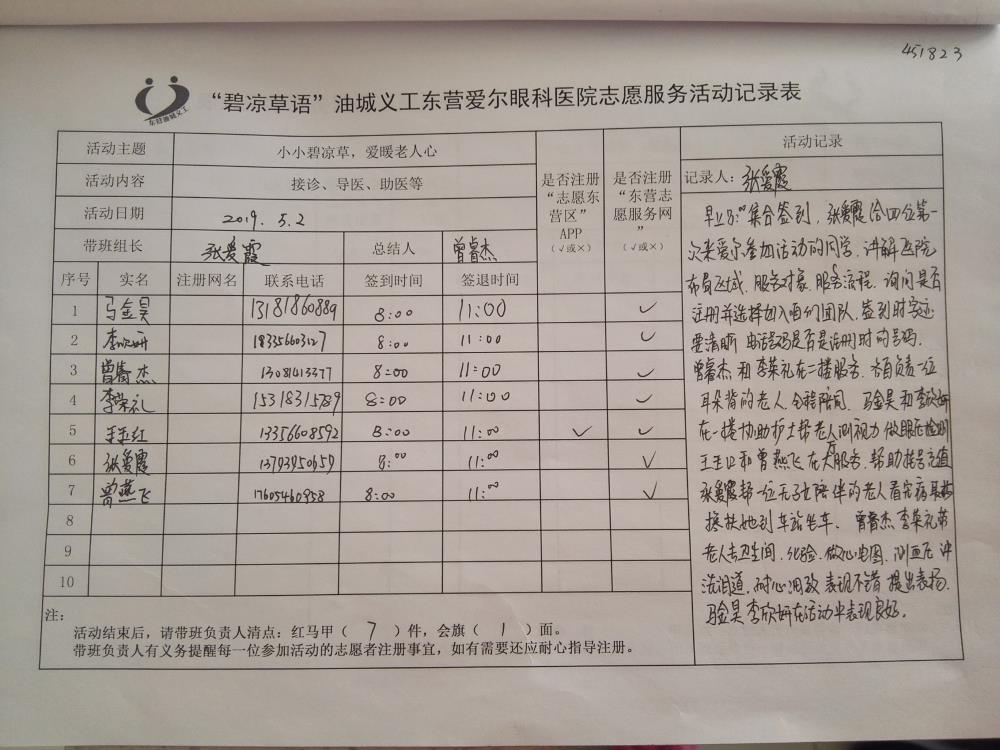 451823
东营油城义工
“碧凉草语”油城义工东营爱尔眼科医院志愿服务活动记录表
活动主题 小小碧凉草，爱暖老人心
活动内容 接诊、导医、助医等
活动日期 2019. 5.2
带班组长 张爱霞 总结人 曾睿杰
是否注册“志愿东营区”APP（√或×）
是否注册“东营志愿服务网”（√或×）
序号 实名 注册网名 联系电话 签到时间 签退时间
1 马金昊 13181860889 8:00 11:00 ✓
2 李欣妍 18335603127 8:00 11:00 ✓
3 曾睿杰 13081413377 8:00 11:00 ✓
4 李荣礼 15318315789 8:00 11:00 ✓
5 王玉红 13356608592 8:00 11:00 ✓ ✓
6 张爱霞 13793950659 8:00 11:00 ✓
7 曾燕飞 17605460958 8:00 11:00 ✓
8
9
10
注：
活动结束后，请带班负责人清点：红马甲（ 7 ）件，会旗（ 1 ）面。
带班负责人有义务提醒每一位参加活动的志愿者注册事宜，如有需要还应耐心指导注册。
活动记录
记录人：张爱霞
早上8:00集合签到，张爱霞给四位第一
次来爱尔参加活动的同学，讲解医院
布局区域，服务对象，服务流程，询问是否
注册并选择加入咱们团队，签到时字迹
要清晰 电话号码是否是注册时的号码。
曾睿杰和李荣礼在二楼服务，各自负责一位
耳朵背的老人，全程陪同，马金昊和李欣妍
在一楼协助护士帮老人测视力做眼压检测
王玉红和曾燕飞在大厅服务，帮助挂号充值
张爱霞帮一位无子女陪伴的老人看完病
搀扶她到车站坐车、曾睿杰李荣礼带
老人去卫生间，化验，做心电图，测血压冲
洗泪道，耐心细致 表现不错 提出表扬，
马金昊李欣妍在活动中表现良好。